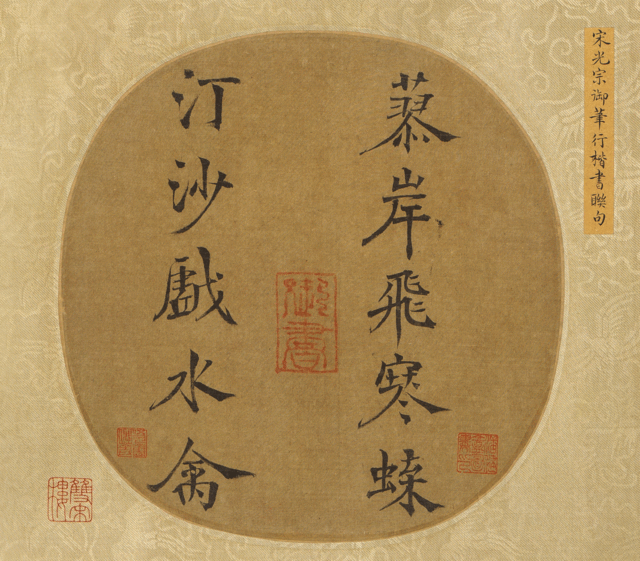 宋光宗御筆行楷書聯句
蓼岸飛寒蝶
汀沙戲水禽
御書
雙宋樓